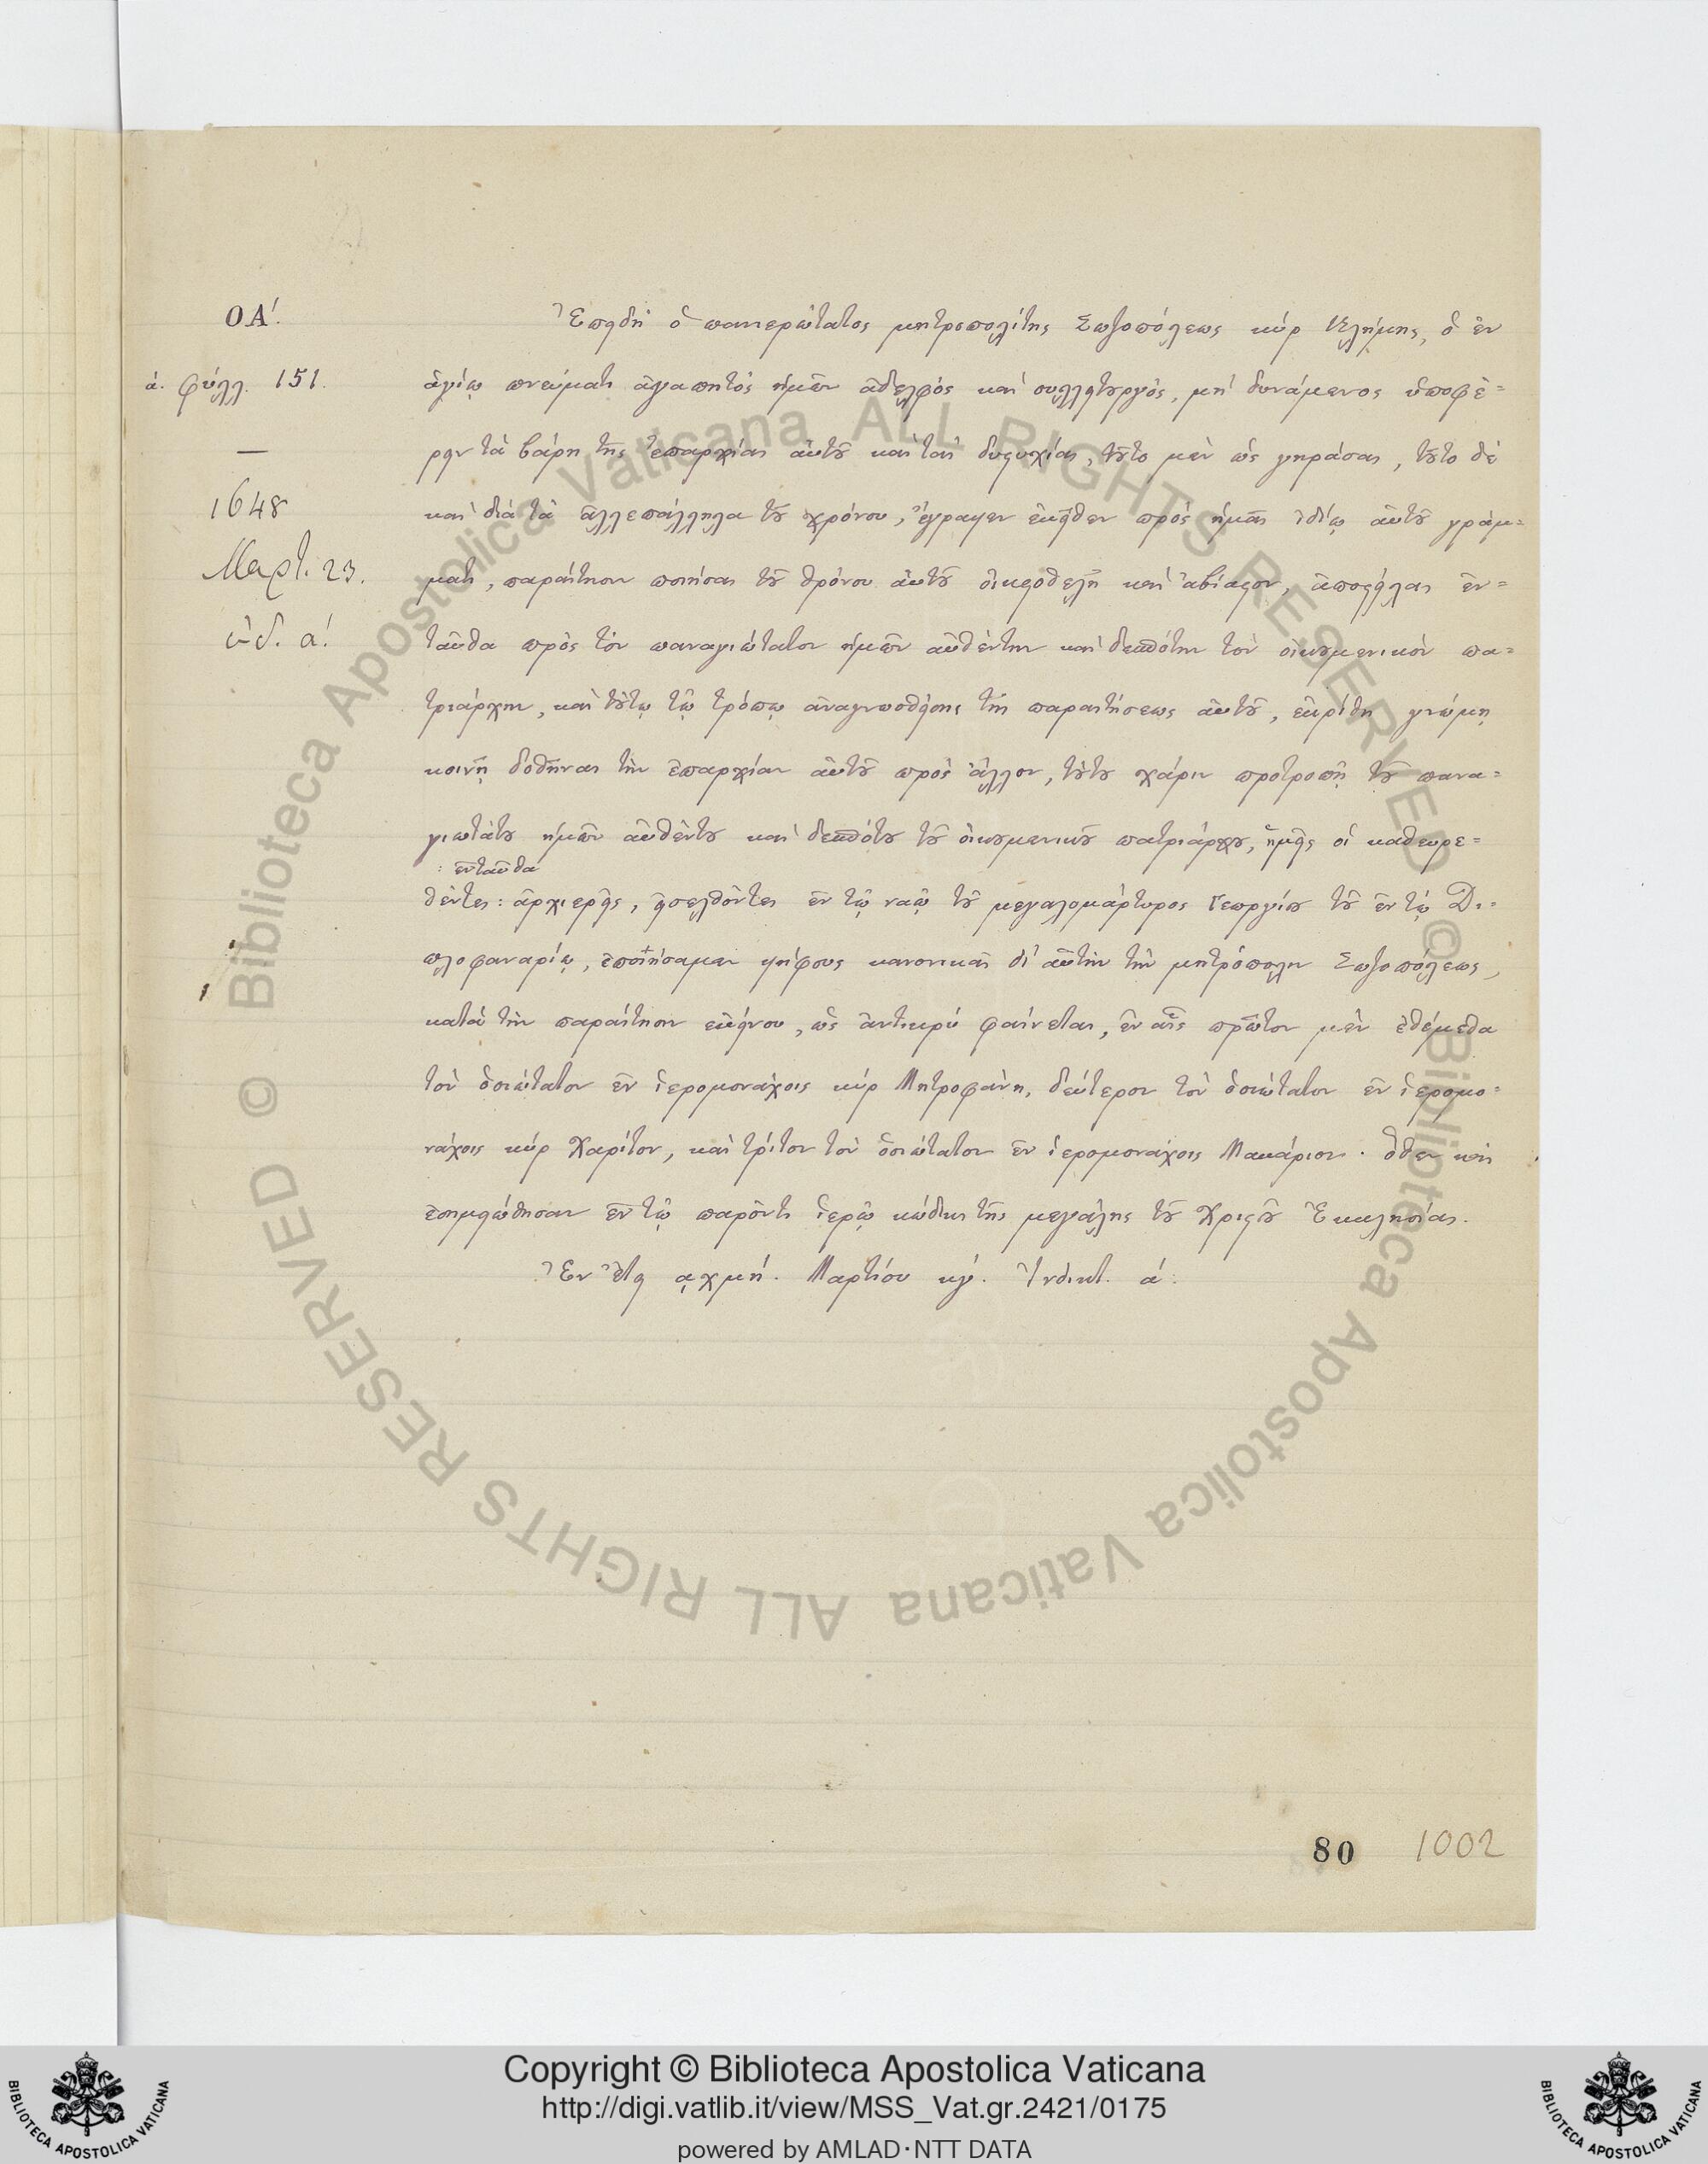 ΟΑ΄.
Ἐπειδὴ ὁ πανιερώτατος μητροπολίτης Σωζοπόλεως κὺρ Κλήμης, ὁ ἐν
ά. φύλλ. 151.
ἁγίῳ πνεύματι ἀγαπητὸς ἡμῶν ἀδελφὸς καὶ συλλειτουργὸς, μὴ δυνάμενος ὑποφέ=
ρειν τὰ βάρη τῆς ἐπαρχίας αὐτοῦ καὶ τὰς δυστυχίας, τοῦτο μὲν ὡς γηράσας, τοῦτο δὲ
1648
καὶ διὰ τὰ ἀλλεπάλληλα τοῦ χρόνου, ἔγραψεν ἐκεῖθεν πρὸς ἡμᾶς ἰδίῳ αὐτοῦ γράμ=
Μαρτ. 23.
ματι, παραίτησιν ποιήσας τοῦ θρόνου αὐτοῦ οἰκειοθελῆ καὶ ἀβίαστον, ἀποστείλας ἐν=
ἰνδ. ά.
ταῦθα πρὸς τὸν παναγιώτατον ἡμῶν αὐθέντην καὶ δεσπότην τὸν οἰκουμενικὸν πα=
τριάρχην, καὶ τούτῳ τῷ τρόπῳ ἀναγνωσθείσης τῆς παραιτήσεως αὐτοῦ, ἐκρίθη γνώμῃ
κοινῇ δοθῆναι τὴν ἐπαρχίαν αὐτοῦ πρὸς ἄλλον, τούτου χάριν προτροπῇ τοῦ πανα=
γιωτάτου ἡμῶν αὐθέντου καὶ δεσπότου τοῦ οἰκουμενικοῦ πατριάρχου, ἡμεῖς οἱ καθευρε=
: ἐνταῦθα
θέντες : ἀρχιερεῖς, εἰσελθόντες ἐν τῷ ναῷ τοῦ μεγαλομάρτυρος Γεωργίου τοῦ ἐν τῷ Δι=
πλοφαναρίῳ, ἐποιήσαμεν ψήφους κανονικὰς δι' αὐτὴν τὴν μητρόπολιν Σωζοπόλεως,
κατὰ τὴν παραίτησιν ἐκείνου, ὡς ἀντικρὺ φαίνεται, ἐν αἷς πρῶτον μὲν ἐθέμεθα
τὸν ὁσιώτατον ἐν ἱερομονάχοις κὺρ Μητροφάνη, δεύτερον τὸν ὁσιώτατον ἐν ἱερομο=
νάχοις κὺρ Χαρίτον, καὶ τρίτον τὸν ὁσιώτατον ἐν ἱερομονάχοις Μακάριον. ὅθεν καὶ
ἐσημειώθησαν ἐν τῷ παρόντι ἱερῷ κώδικι τῆς μεγάλης τοῦ Χριστοῦ Ἐκκλησίας.
Ἐν ἔτει ͵αχμή. Μαρτίου κγ΄. Ἰνδικτ. ά.
80 1002
© Biblioteca Apostolica Vaticana ALL RIGHTS RESERVED © Biblioteca Apostolica Vaticana ALL RIGHTS RESERVED
Copyright © Biblioteca Apostolica Vaticana
http://digi.vatlib.it/view/MSS_Vat.gr.2421/0175
powered by AMLAD·NTT DATA
BIBLIOTECA APOSTOLICA VATICANA
BIBLIOTECA APOSTOLICA VATICANA